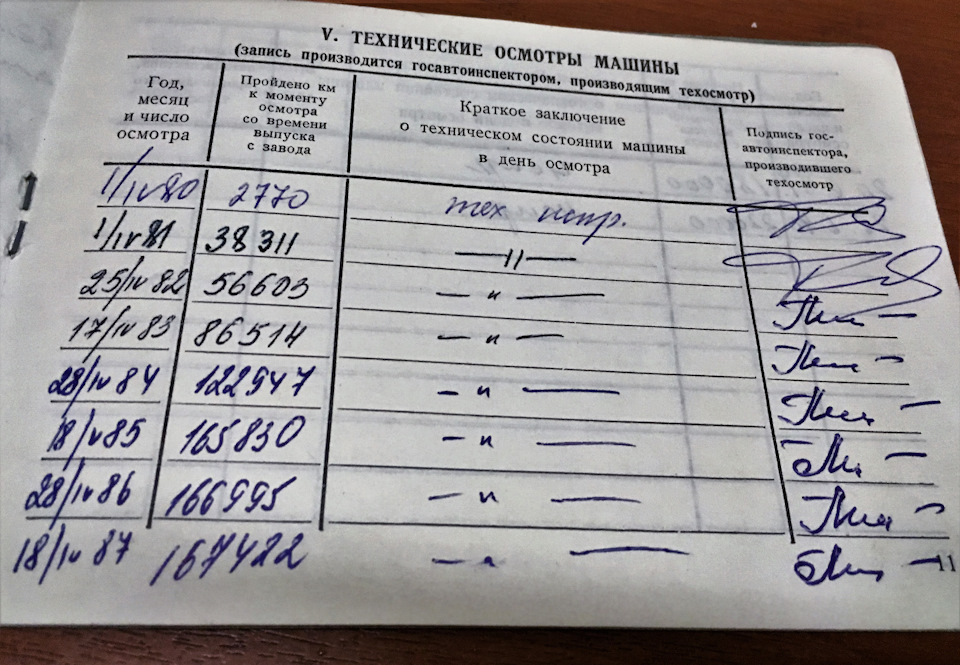 V. ТЕХНИЧЕСКИЕ ОСМОТРЫ МАШИНЫ
(запись производится госавтоинспектором, производящим техосмотр)
Год,
месяц
и число
осмотра
Пройдено км
к моменту
осмотра
со времени
выпуска
с завода
Краткое заключение
о техническом состоянии машины
в день осмотра
Подпись гос-
автоинспектора,
производившего
техосмотр
1/IV 80 2770 тех испр.
1/IV 81 38311 —〃—
25/IV 82 56603 — 〃 —
17/IV 83 86514 — 〃 —
28/IV 84 122947 — 〃 —
18/IV 85 165830 — 〃 —
28/IV 86 166995 — 〃 —
18/IV 87 167422 — 〃 —
11